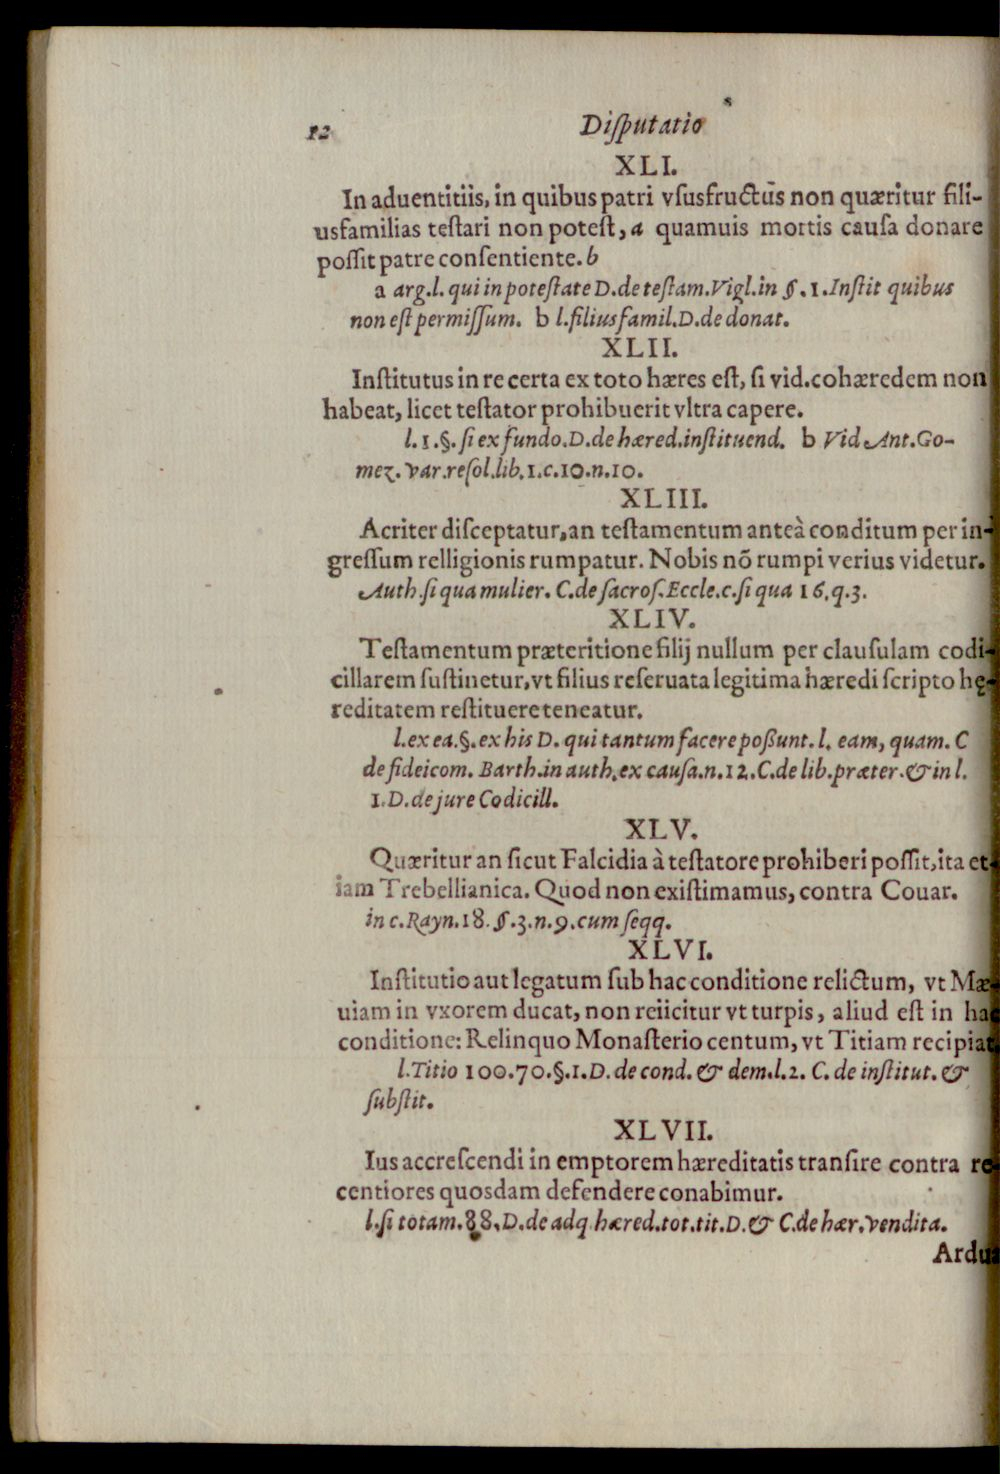 12 Diſputatio
XLI.
In aduentitiis, in quibus patri vſusfructus non quæritur fili-
usfamilias teſtari non poteſt, a quamuis mortis cauſa donare
poſſit patre conſentiente. b
a arg.l. qui in poteſtate D. de teſtam. Vigl. in §. 1. Inſtit quibus
non eſt permiſſum. b l. filiusfamil. D. de donat.
XLII.
Inſtitutus in re certa ex toto hæres eſt, ſi vid. cohæredem non
habeat, licet teſtator prohibuerit vltra capere.
l. 1. §. ſi ex fundo. D. de hæred. inſtituend. b Vid Ant. Go-
mez. var. reſol. lib. 1. c. 10. n. 10.
XLIII.
Acriter diſceptatur, an teſtamentum anteà conditum per in-
greſſum relligionis rumpatur. Nobis nõ rumpi verius videtur.
Auth. ſi qua mulier. C. de ſacroſ. Eccle. c. ſi qua 16. q. 3.
XLIV.
Teſtamentum præteritione filij nullum per clauſulam codi-
cillarem ſuſtinetur, vt filius reſeruata legitima hæredi ſcripto hę-
reditatem reſtituere teneatur.
l. ex ea. §. ex his D. qui tantum facere poßunt. l. eam, quam. C
de fideicom. Barth. in auth. ex cauſa. n. 12. C. de lib. præter. & in l.
1. D. de jure Codicill.
XLV.
Quæritur an ſicut Falcidia à teſtatore prohiberi poſſit, ita et-
iam Trebellianica. Quod non exiſtimamus, contra Couar.
in c. Rayn. 18. §. 3. n. 9. cum ſeqq.
XLVI.
Inſtitutio aut legatum ſub hac conditione relictum, vt Mæ-
uiam in vxorem ducat, non reiicitur vt turpis, aliud eſt in hac
conditione: Relinquo Monaſterio centum, vt Titiam recipiat.
l. Titio 100. 70. §. 1. D. de cond. & dem. l. 2. C. de inſtitut. &
ſubſtit.
XLVII.
Ius accreſcendi in emptorem hæreditatis tranſire contra re-
centiores quosdam defendere conabimur.
l. ſi totam. 88. D. de adq hæred. tot. tit. D. & C. de hær. vendita.
Ardua